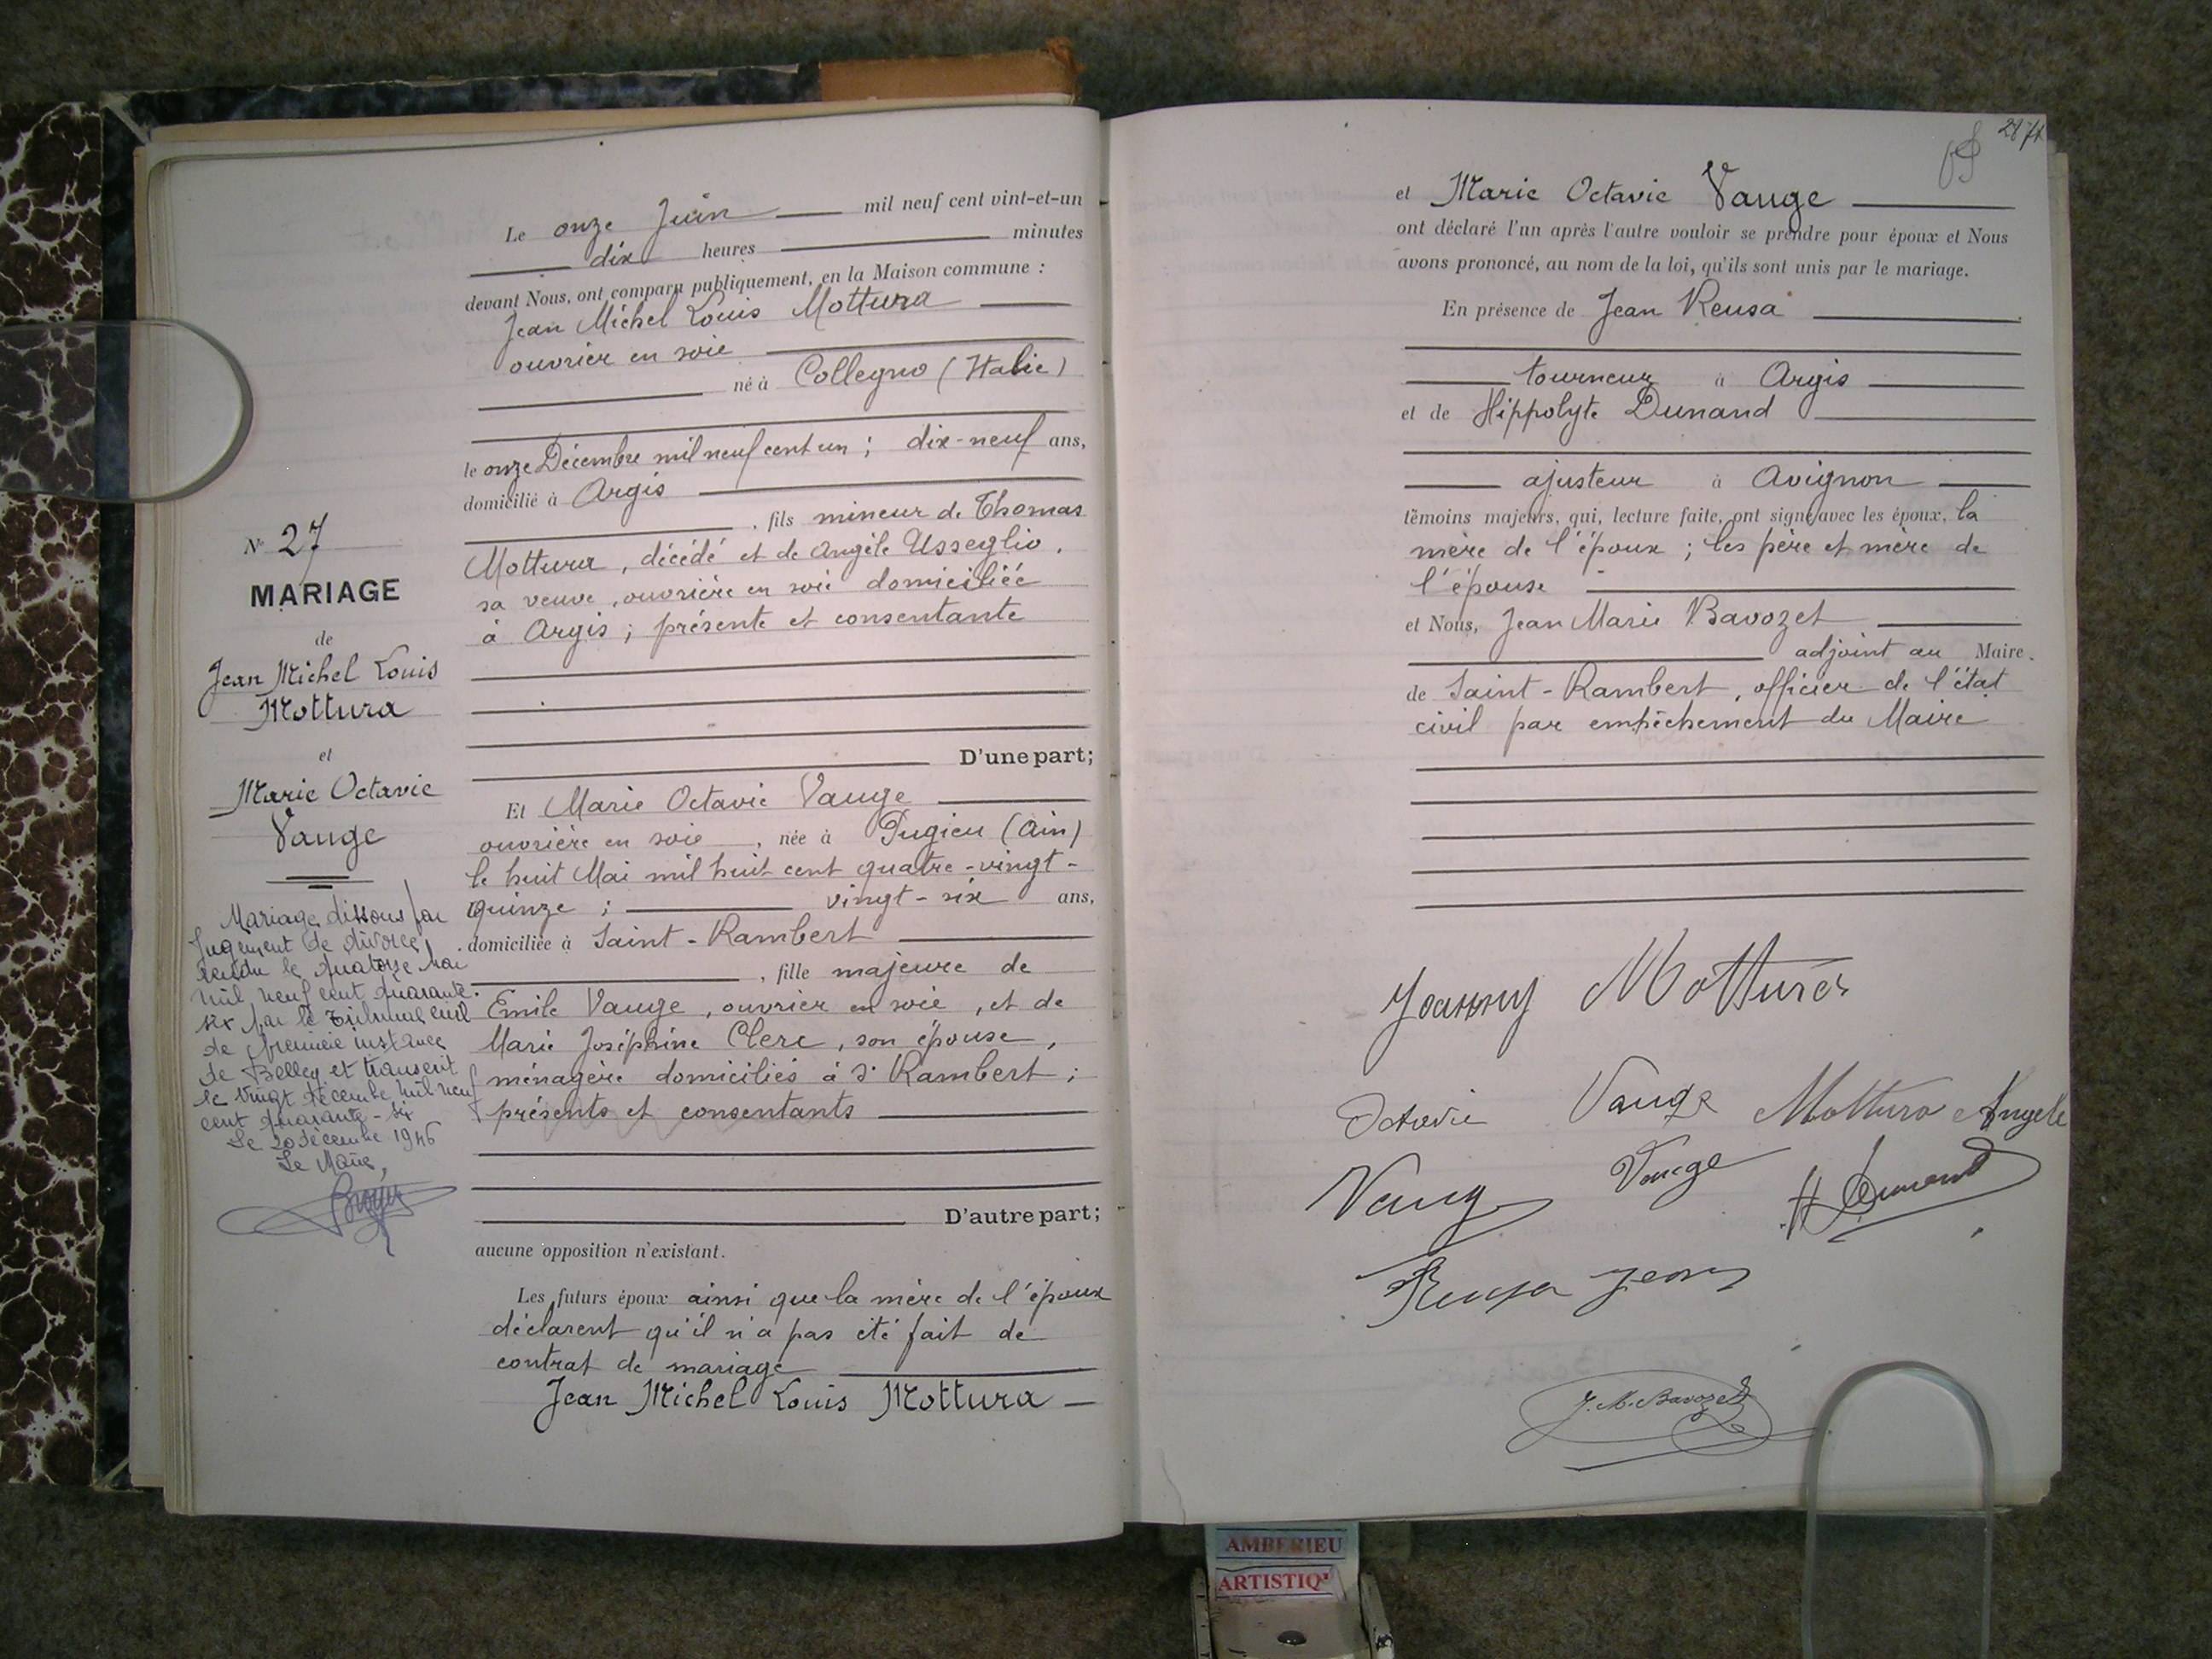 Le onze Juin mil neuf cent vint-et-un
dix heures minutes
devant Nous, ont comparu publiquement, en la Maison commune :
Jean Michel Louis Mottura
ouvrier en soie
né à Collegno (Italie)
le onze Décembre mil neuf cent un ; dix-neuf ans,
domicilié à Argis
, fils mineur de Thomas
Mottura, décédé et de Angèle Usseglio,
sa veuve, ouvrière en soie domiciliée
à Argis ; présente et consentante
D'une part;
Et Marie Octavie Vauge
ouvrière en soie , née à Pugieu (Ain)
le huit Mai mil huit cent quatre-vingt-
quinze ; vingt-six ans,
domiciliée à Saint-Rambert
, fille majeure de
Emile Vauge, ouvrier en soie, et de
Marie Joséphine Clerc, son épouse,
ménagère domiciliés à St Rambert ;
présents et consentants
D'autre part;
aucune opposition n'existant.
Les futurs époux ainsi que la mère de l'époux
déclarent qu'il n'a pas été fait de
contrat de mariage
Jean Michel Louis Mottura
N° 27
MARIAGE
de
Jean Michel Louis
Mottura
et
Marie Octavie
Vauge
Mariage dissous par
Jugement de divorce
rendu le quatorze Mai
mil neuf cent quarante-
six par le Tribunal civil
de première instance
de Belley et transcrit
le vingt décembre mil neuf
cent quarante-six
Le 20 décembre 1946
Le Maire,
et Marie Octavie Vauge
ont déclaré l'un après l'autre vouloir se prendre pour époux et Nous
avons prononcé, au nom de la loi, qu'ils sont unis par le mariage.
En présence de Jean Reusa
tourneur à Argis
et de Hippolyte Dunand
ajusteur à Avignon
témoins majeurs, qui, lecture faite, ont signé avec les époux, la
mère de l'époux ; les père et mère de
l'épouse
et Nous, Jean Marie Bavozet
adjoint au Maire
de Saint-Rambert, officier de l'état
civil par empêchement du Maire
Joanny Mottura
Octavie Vauge Mottura Angele
Vauge Vauge H Dunand
Reusa Jean
J. M. Bavozet
AMBERIEU
ARTISTIQ